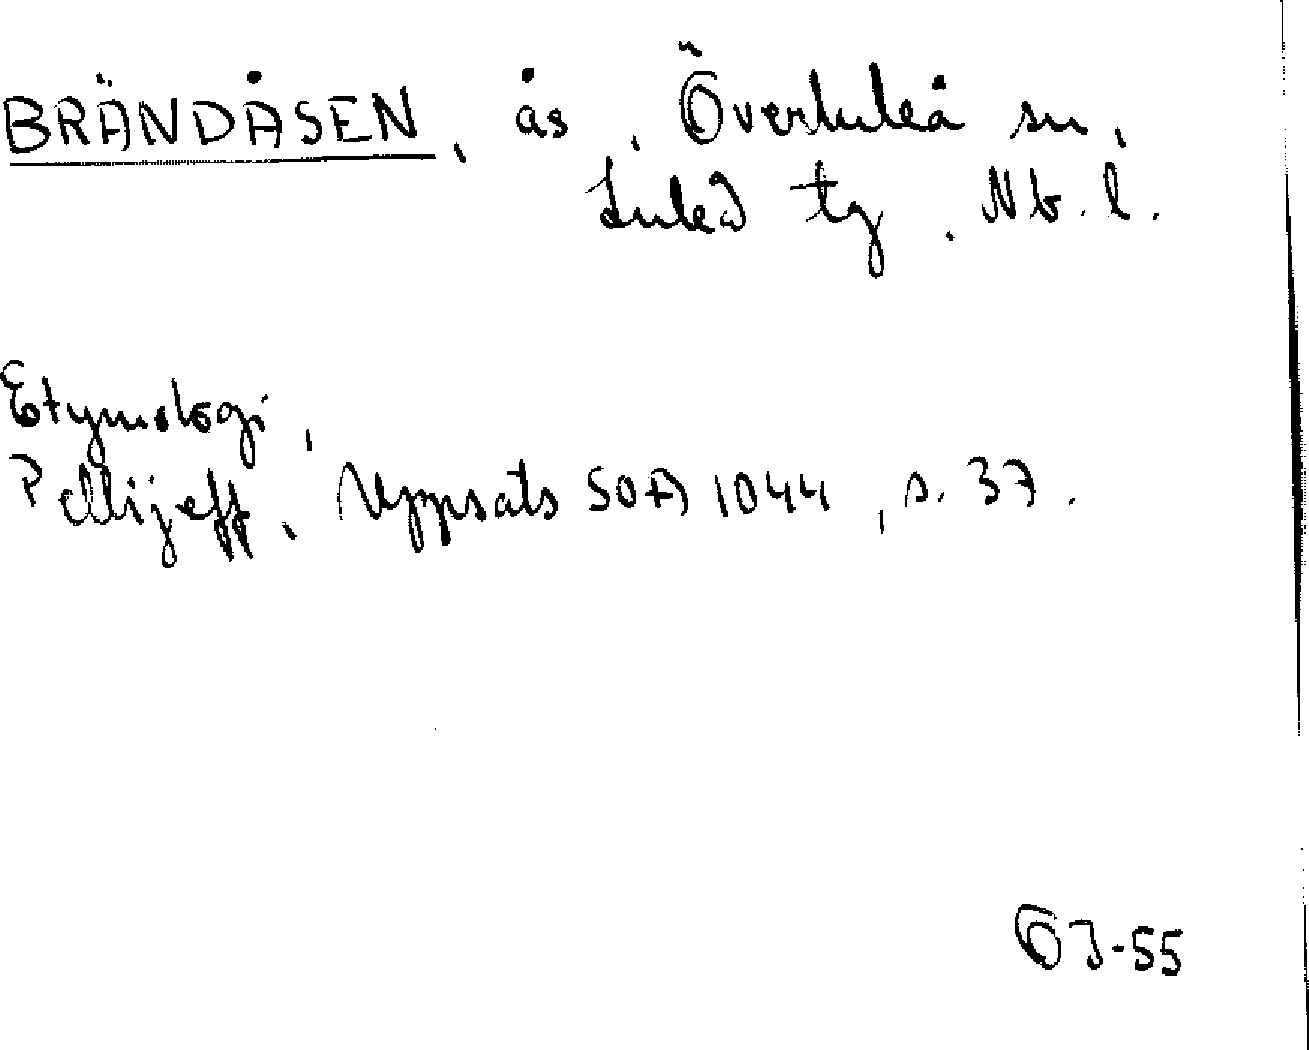 BRÄNDÅSEN, ås, Överluleå sn,
Luleå tg. Nb. l.
Etymologi,
Pellijeff, Uppsats SOA 1044, s. 37.
ÖJ-55